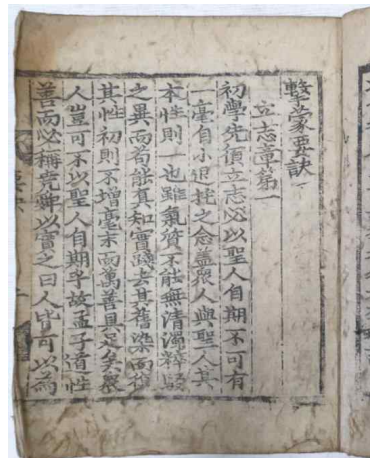 擊蒙要訣
立志章第一
初學先須立志必以聖人自期不可有
一毫自小退託之念盖衆人與聖人其
本性則一也雖氣質不能無清濁粹駁
之異而苟能真知實踐去其舊染而復
其性初則不增毫末而萬善具足矣衆
人豈可不以聖人自期乎故孟子道性
善而必稱堯舜以實之曰人皆可以為